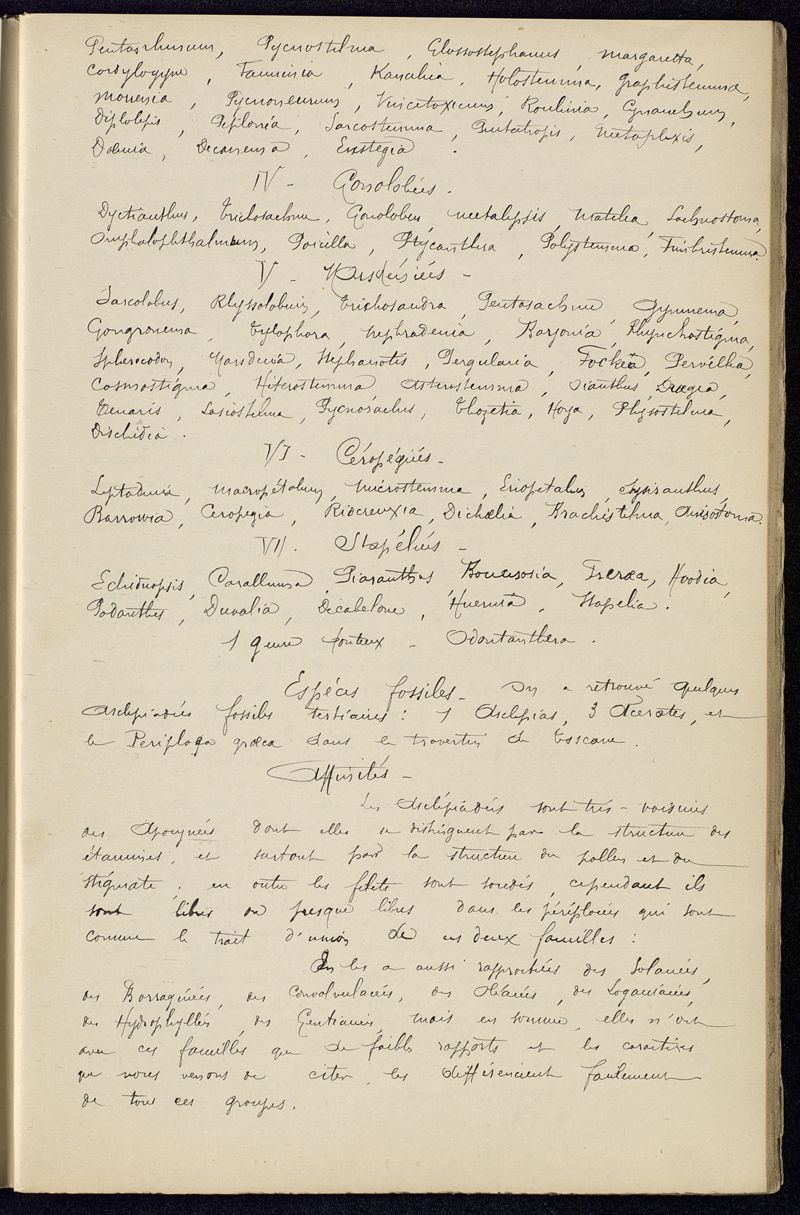 Pentarrhinum, Pycnostelma, Glossostephanus, Margaretta,
Cordylogyne, Fanninia, Kanahia, Holostemma, Graphistemma,
Morrenia, Pycnoneurum, Vincetoxicum, Roulinia, Cynanchum,
Diplolepis, Peplonia, Sarcostemma, Pentatropis, Metaplexis,
Dæmia, Decanema, Eustegia.
IV - Gonolobées -
Dyctianthus, Trichosachme, Gonolobus, Metalepsis, Matelea, Lachnostoma,
Omphalophthalmum, Poicilla, Ptycanthera, Polystemma, Fimbristemma.
V - Marsdéniées -
Sarcolobus, Rhyssolobium, Trichosandra, Pentasachme, Gymnema,
Gongronema, Tylophora, Nephradenia, Barjonia, Rhynchostigma,
Spherocodon, Marsdenia, Stephanotis, Pergularia, Fockea, Pervillæa,
Cosmostigma, Heterostemma, Asterostemma, Oianthus, Dregea,
Tenaris, Lasiostelma, Pycnosachus, Thozetia, Hoya, Physostelma,
Dischidia.
VI - Céropégiées -
Leptadenia, Macropétalum, Microstemma, Eriopetalum, Sysiranthus,
Barrowia, Ceropegia, Riocreuxia, Dichælia, Brachistelma, Anisotoma.
VII. Stapéliées -
Echidnopsis, Caralluma, Piaranthus, Boucerosia, Frerea, Hoodia,
Podanthes, Duvalia, Decabelone, Huernia, Stapelia.
1 genre douteux - Odontanthera.
Espèces fossiles - On a retrouvé quelques
Asclepiadées fossiles tertiaires : 1 Asclepias, 3 Acerates, et
le Periploca græca dans le travertin de Toscane.
Affinités -
Les Asclépiadées sont très-voisines
des Apocynées dont elles se distinguent par la structure des
étamines, et surtout par la structure du pollen et du
stigmate ; en outre les filets sont soudés, cependant ils
sont libres ou presque libres dans les périplocées qui sont
comme le trait d'union de ces deux familles :
On les a aussi rapprochées des Solanées,
des Borraginées, des Convolvulacées, des Oléacées, des Loganiacées,
des Hydrophyllées, des Gentianées, mais en somme, elles n'ont
avec ces familles que de faibles rapports et les caractères
que nous venons de citer, les différencient facilement
de tous ces groupes.